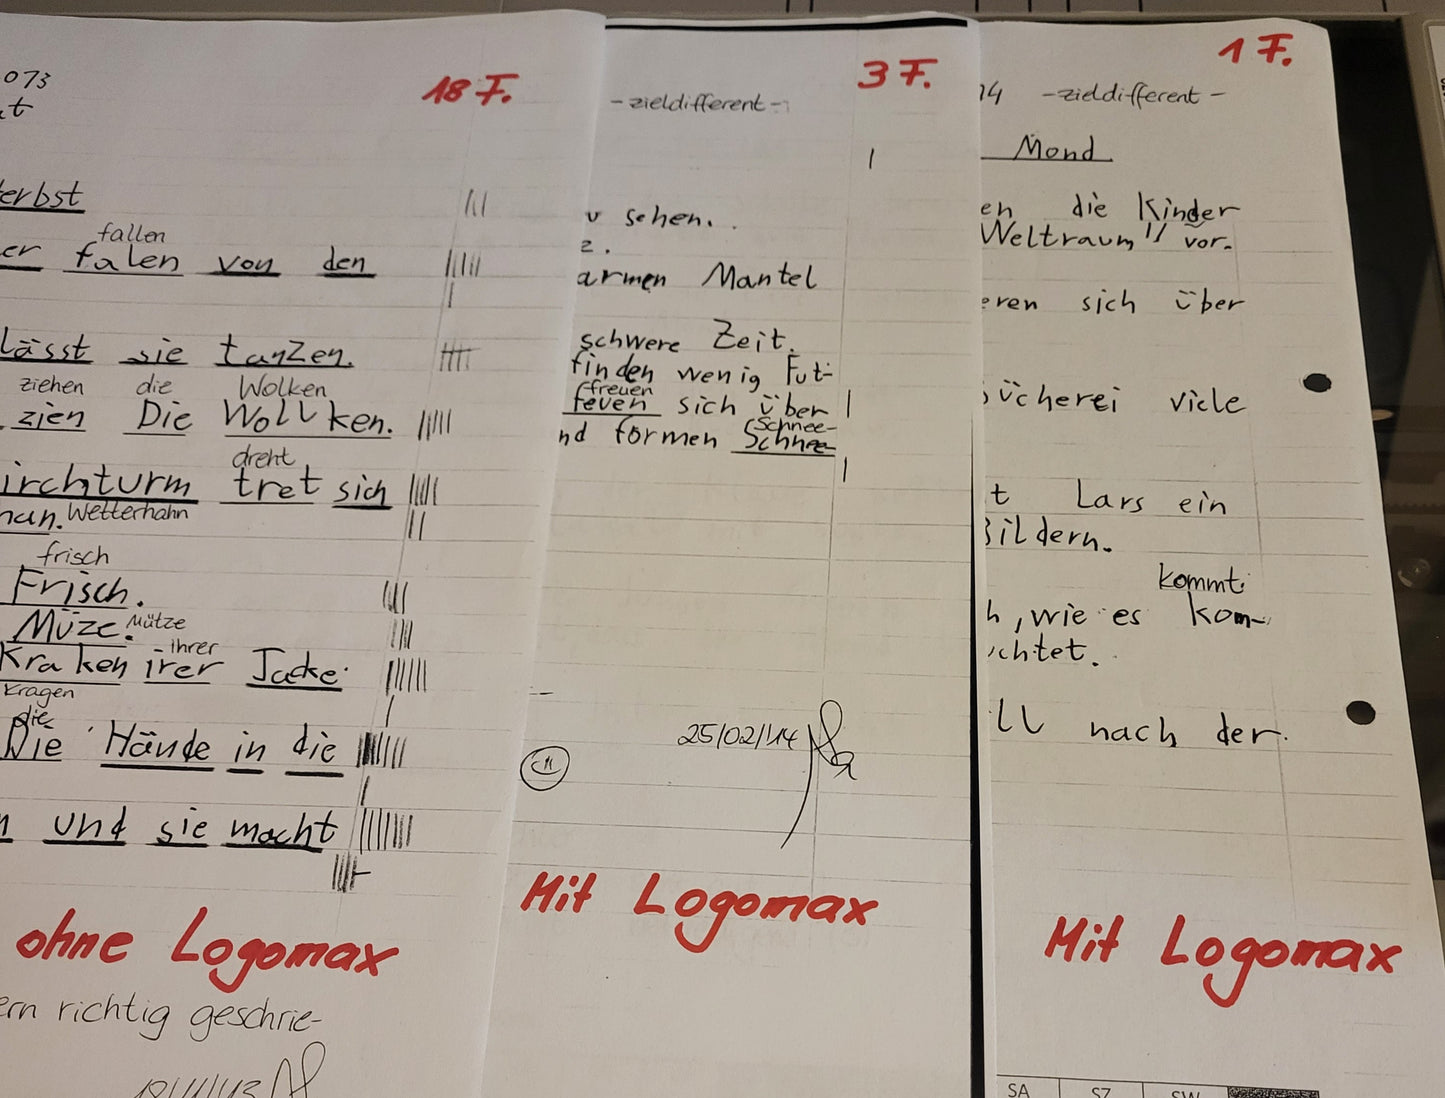 073
18 F.
erbst
fallen
er falen von den
lässt sie tanzen.
ziehen die Wolken
zien Die Wollken.
dreht
irchturm tret sich
han. Wetterhahn
frisch
Frisch.
Müze. Mütze
ihrer
Kraken irer Jacke.
Kragen
die
Die Hände in die
n und sie macht
ohne Logomax
ern richtig geschrie-
3 F.
-zieldifferent-
u sehen.
z.
armen Mantel
schwere Zeit.
finden wenig Fut-
freuen
feuen sich über
Schnee-
nd formen Schnee-
25/02/14
Mit Logomax
1 F.
14 -zieldifferent-
Mond
en die Kinder
Weltraum" vor.
eren sich über
ücherei viele
t Lars ein
Bildern.
kommt
h, wie es kom-
chtet.
ll nach der
Mit Logomax
SA SZ SW